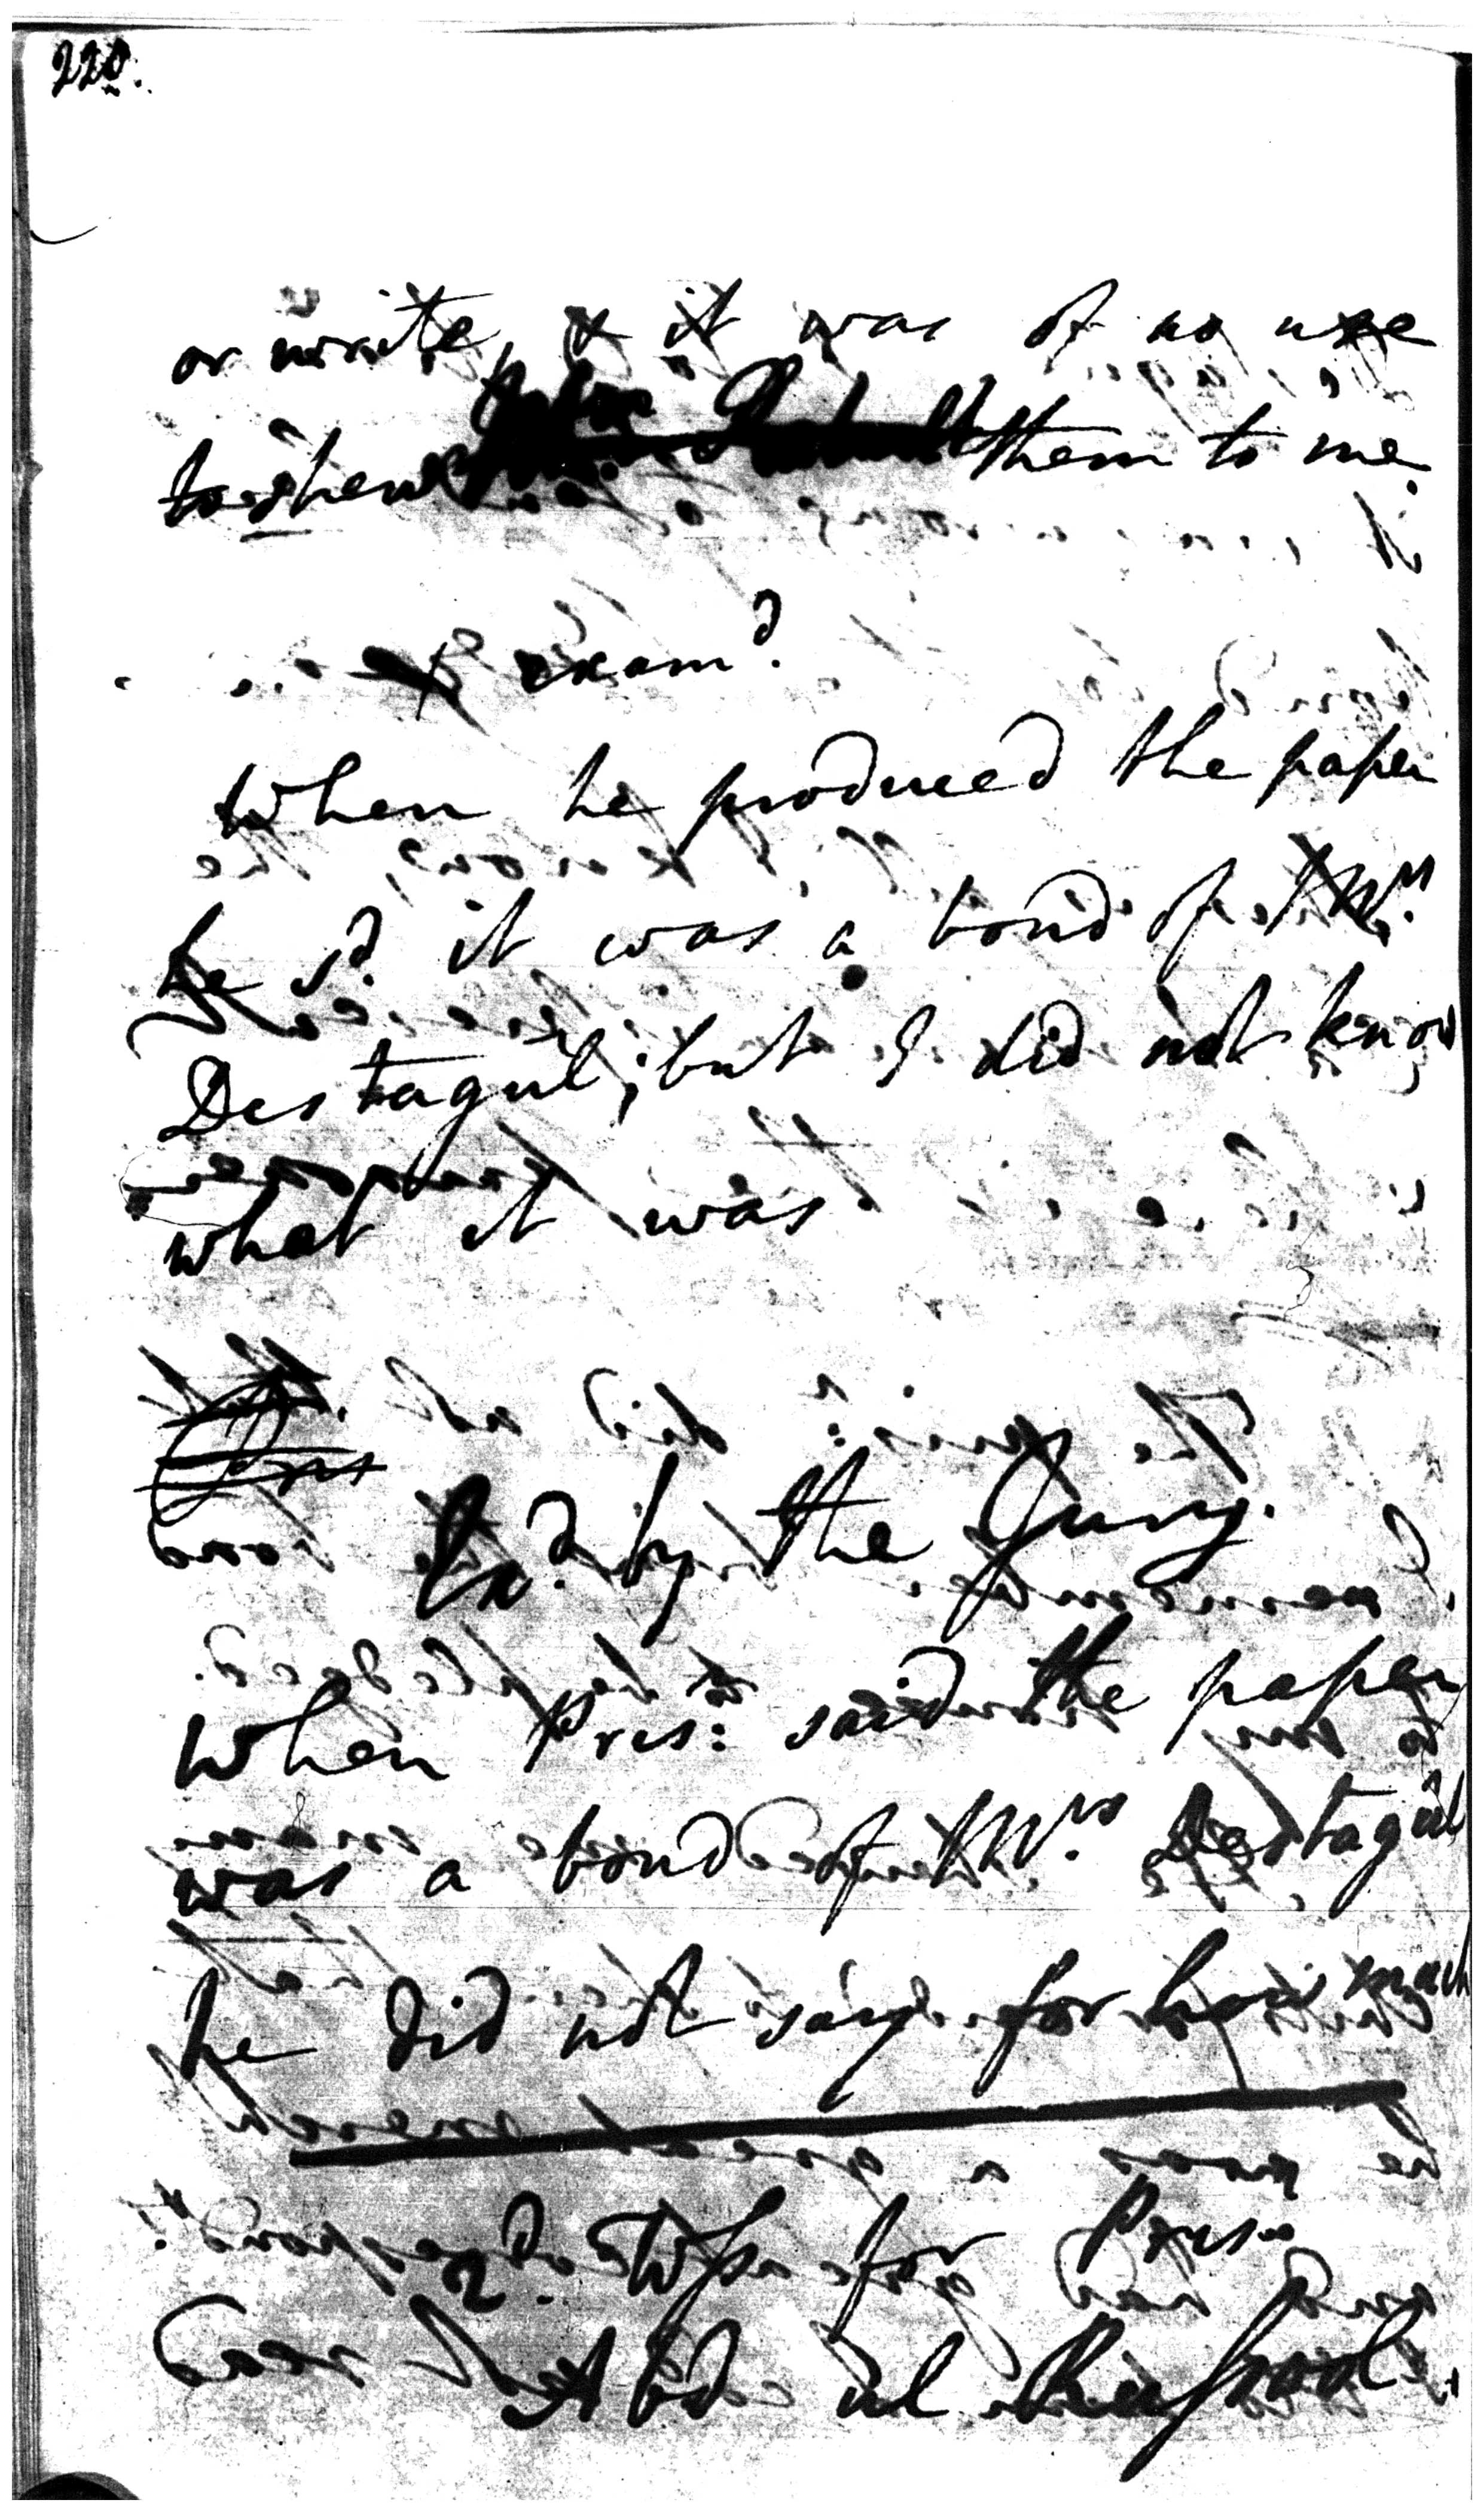 220.
or write, & it was of no use
to shew them to me
X exam^d.
When he produced the paper
he s^d. it was a bond of KW^rs.
Destagul; but I did not know
what it was.
Ex^d. by the Jury.
When Pris^r: said the paper
was a bond of KW^rs. Destagul
he did not say for how much
2^d. Wss for Pris^r
Abd ul Russool.